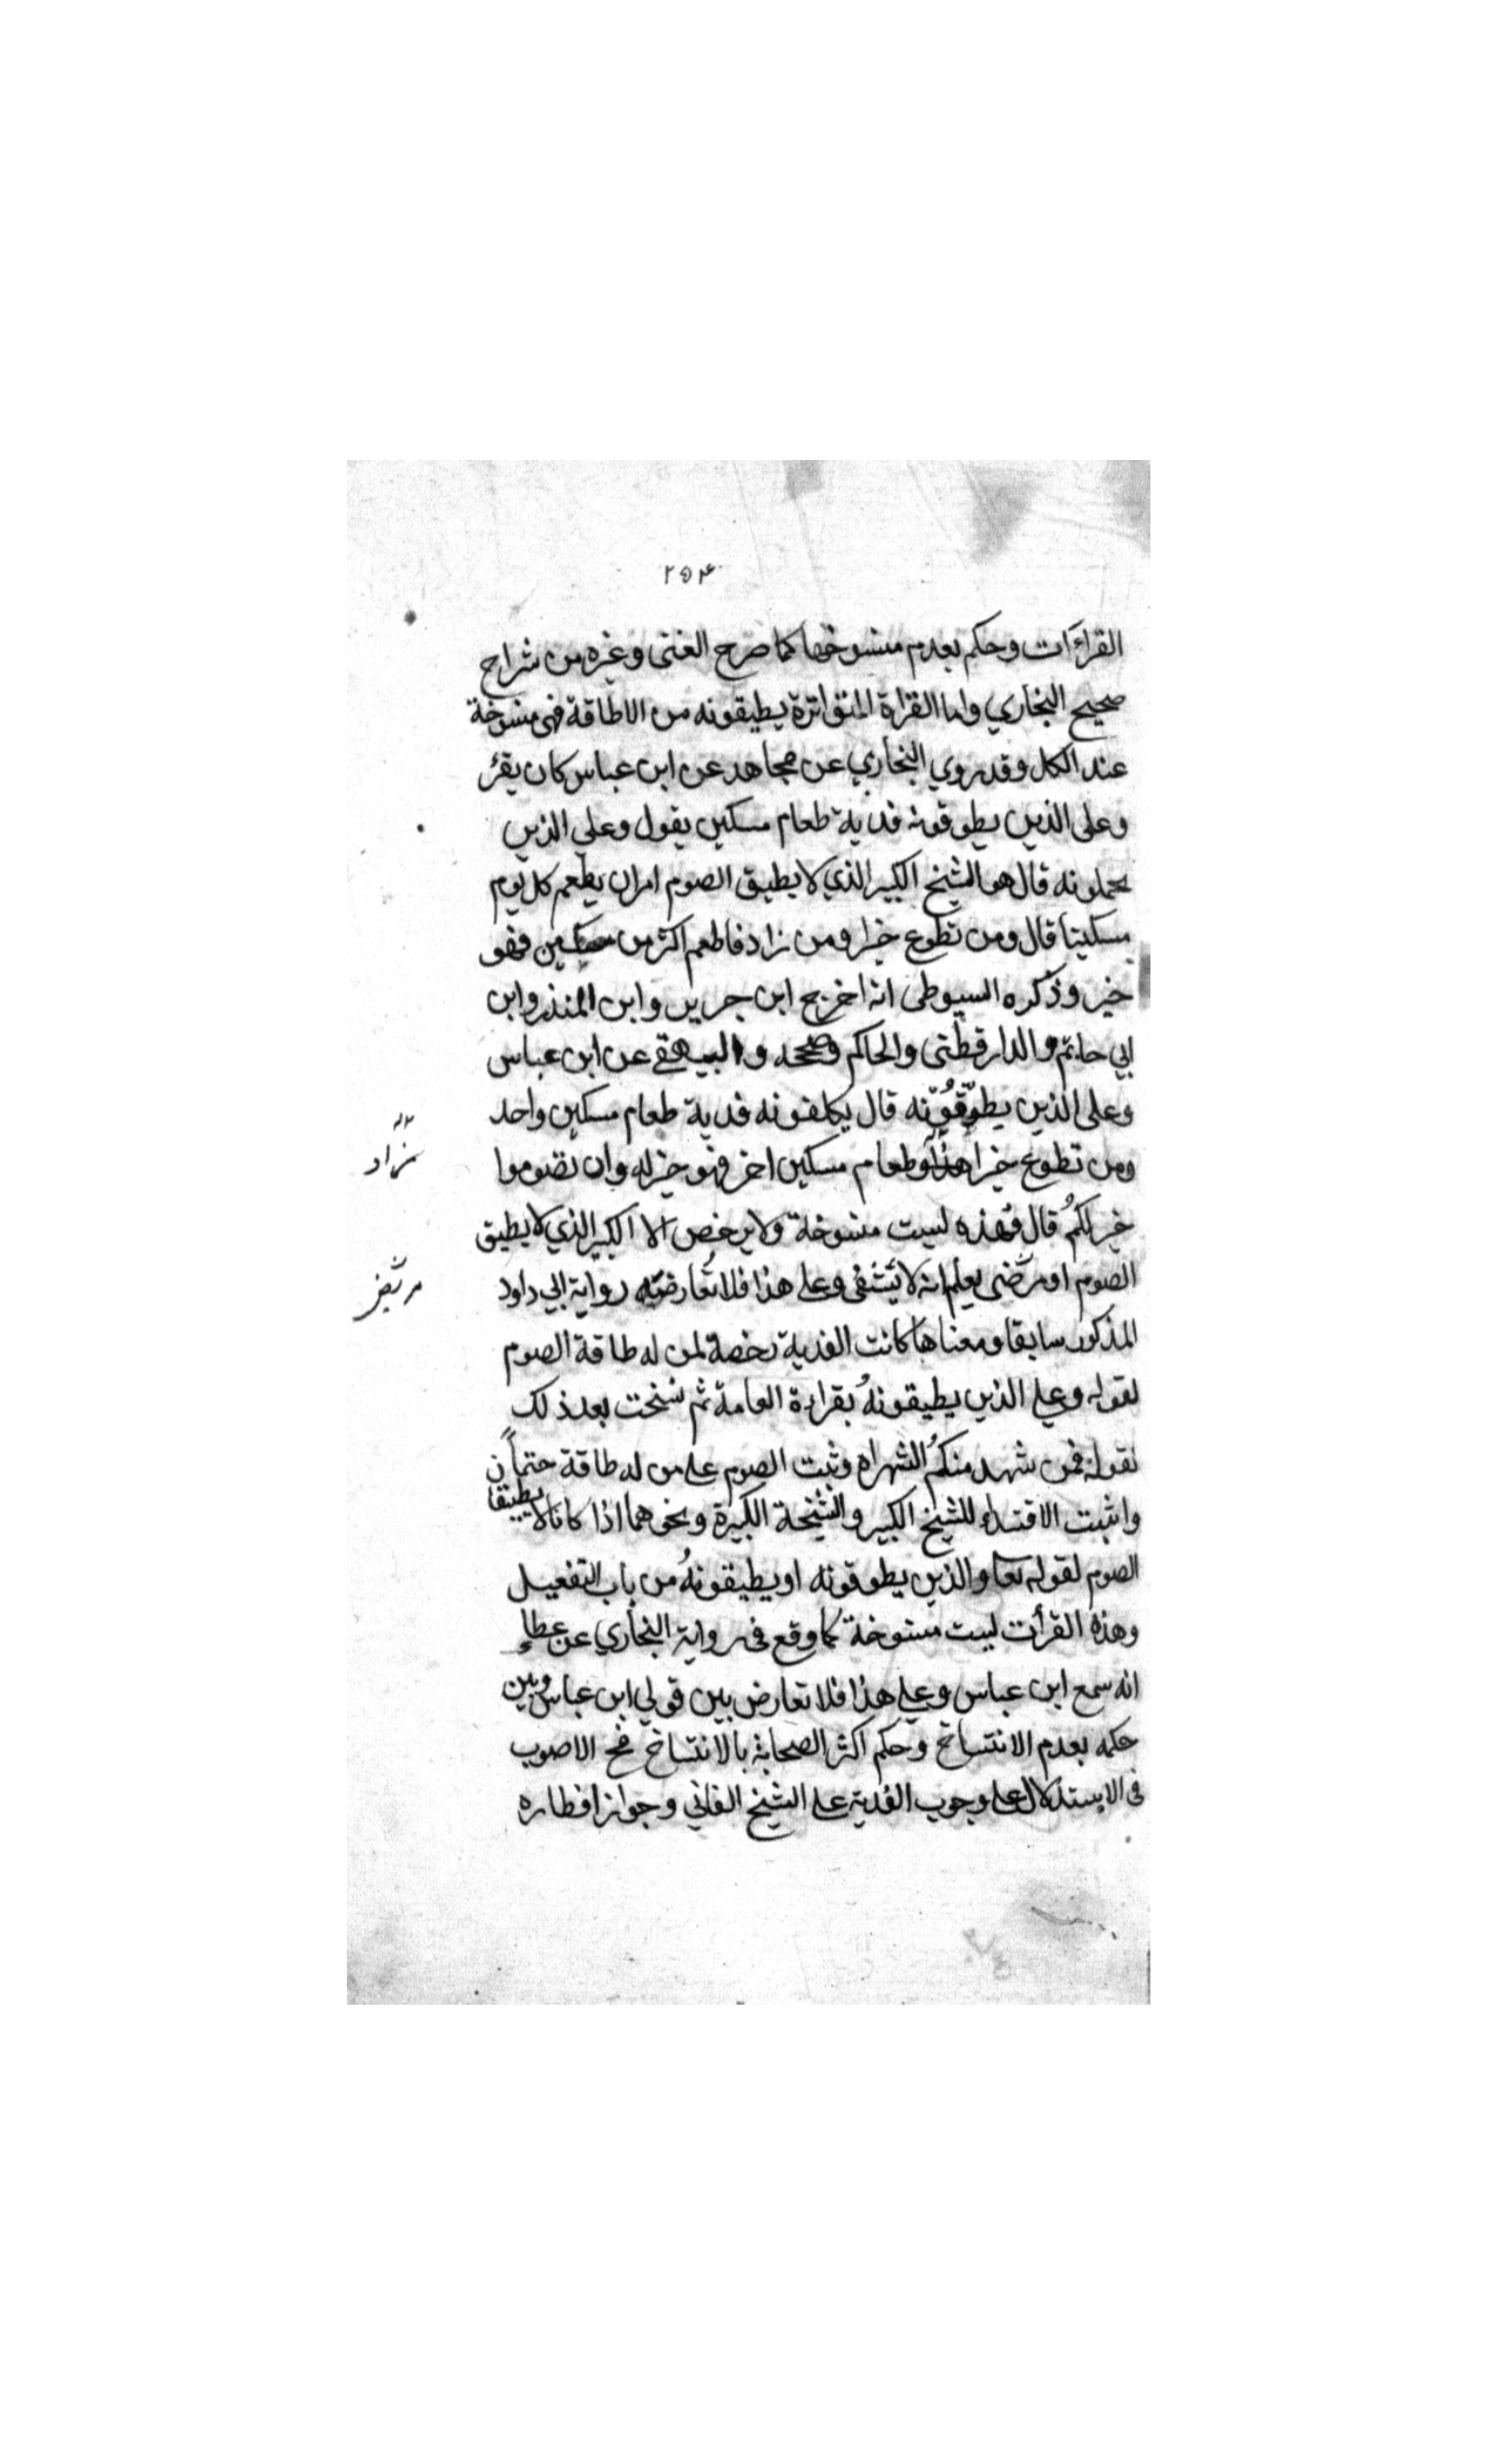 ٢٥٤
القراءات وحكم بعدم منسوخها كما صرح العينى وغيره من شراح
صحيح البخاري واما القراة المتواترة يطيقونه من الاطاقة فهى منسوخة
عند الكل وقد روي البخاري عن مجاهد عن ابن عباس كان يقرٔ
وعلى الذين يطوقونه فدية طعام مسكين يقول وعلي الذين
يحملونه قال هو الشيخ الكبير الذي لا يطيق الصوم امر ان يطعم كل يوم
مسكينا قال ومن تطوع خيرا ومن زاد فاطعم اكثر من مسكين فهو
خير وذكره السيوطى انه اخرج ابن جرير وابن المنذر وابن
ابي حاتم والدارقطنى والحاكم وصححه والبيهقے عن ابن عباس
وعلى الذين يطوّقُوْنه قال يكلفونه فدية طعام مسكين واحد
ومن تطوع خيرا طعام مسكين اخر فهو خير له وان تصوموا
زاد
خير لكُم قال فهذه ليست منسوخة ولا يرخص الا الكبير الذي لا يطيق
الصوم او مرضى يعلم انه لا يشفى وعلے هذا فلا تُعارضه رواية ابي داود
مريض
المذكور سابقا ومعناها كانت الفدية رخصة لمن له طاقة الصوم
لقوله وعلے الذين يطيقونهُ بقراءة العامة ثم نسخت بعد ذلك
بقوله فمن شهد منكُم الشهر اه وثبت الصوم علے من له طاقة حتماً
واثبت الافتداء للشيخ الكبير والشيخة الكبيرة ونحوهما اذا كانا لا يطيقان
الصوم لقوله تعا والذين يطوقونه او يطيقونهُ من باب التفعيل
وهذه القرأت ليست منسوخة كما وقع فى رواية البخاري عن عطاء
انه سمع ابن عباس وعلے هذا فلا تعارض بين قولي ابن عباس وبين
حكمه بعدم الانتساخ وحكم اكثر الصحابة بالانتساخ فح الاصوب
فى الاستدلال علے وجوب الفدية علے الشيخ الفاني وجواز افطاره